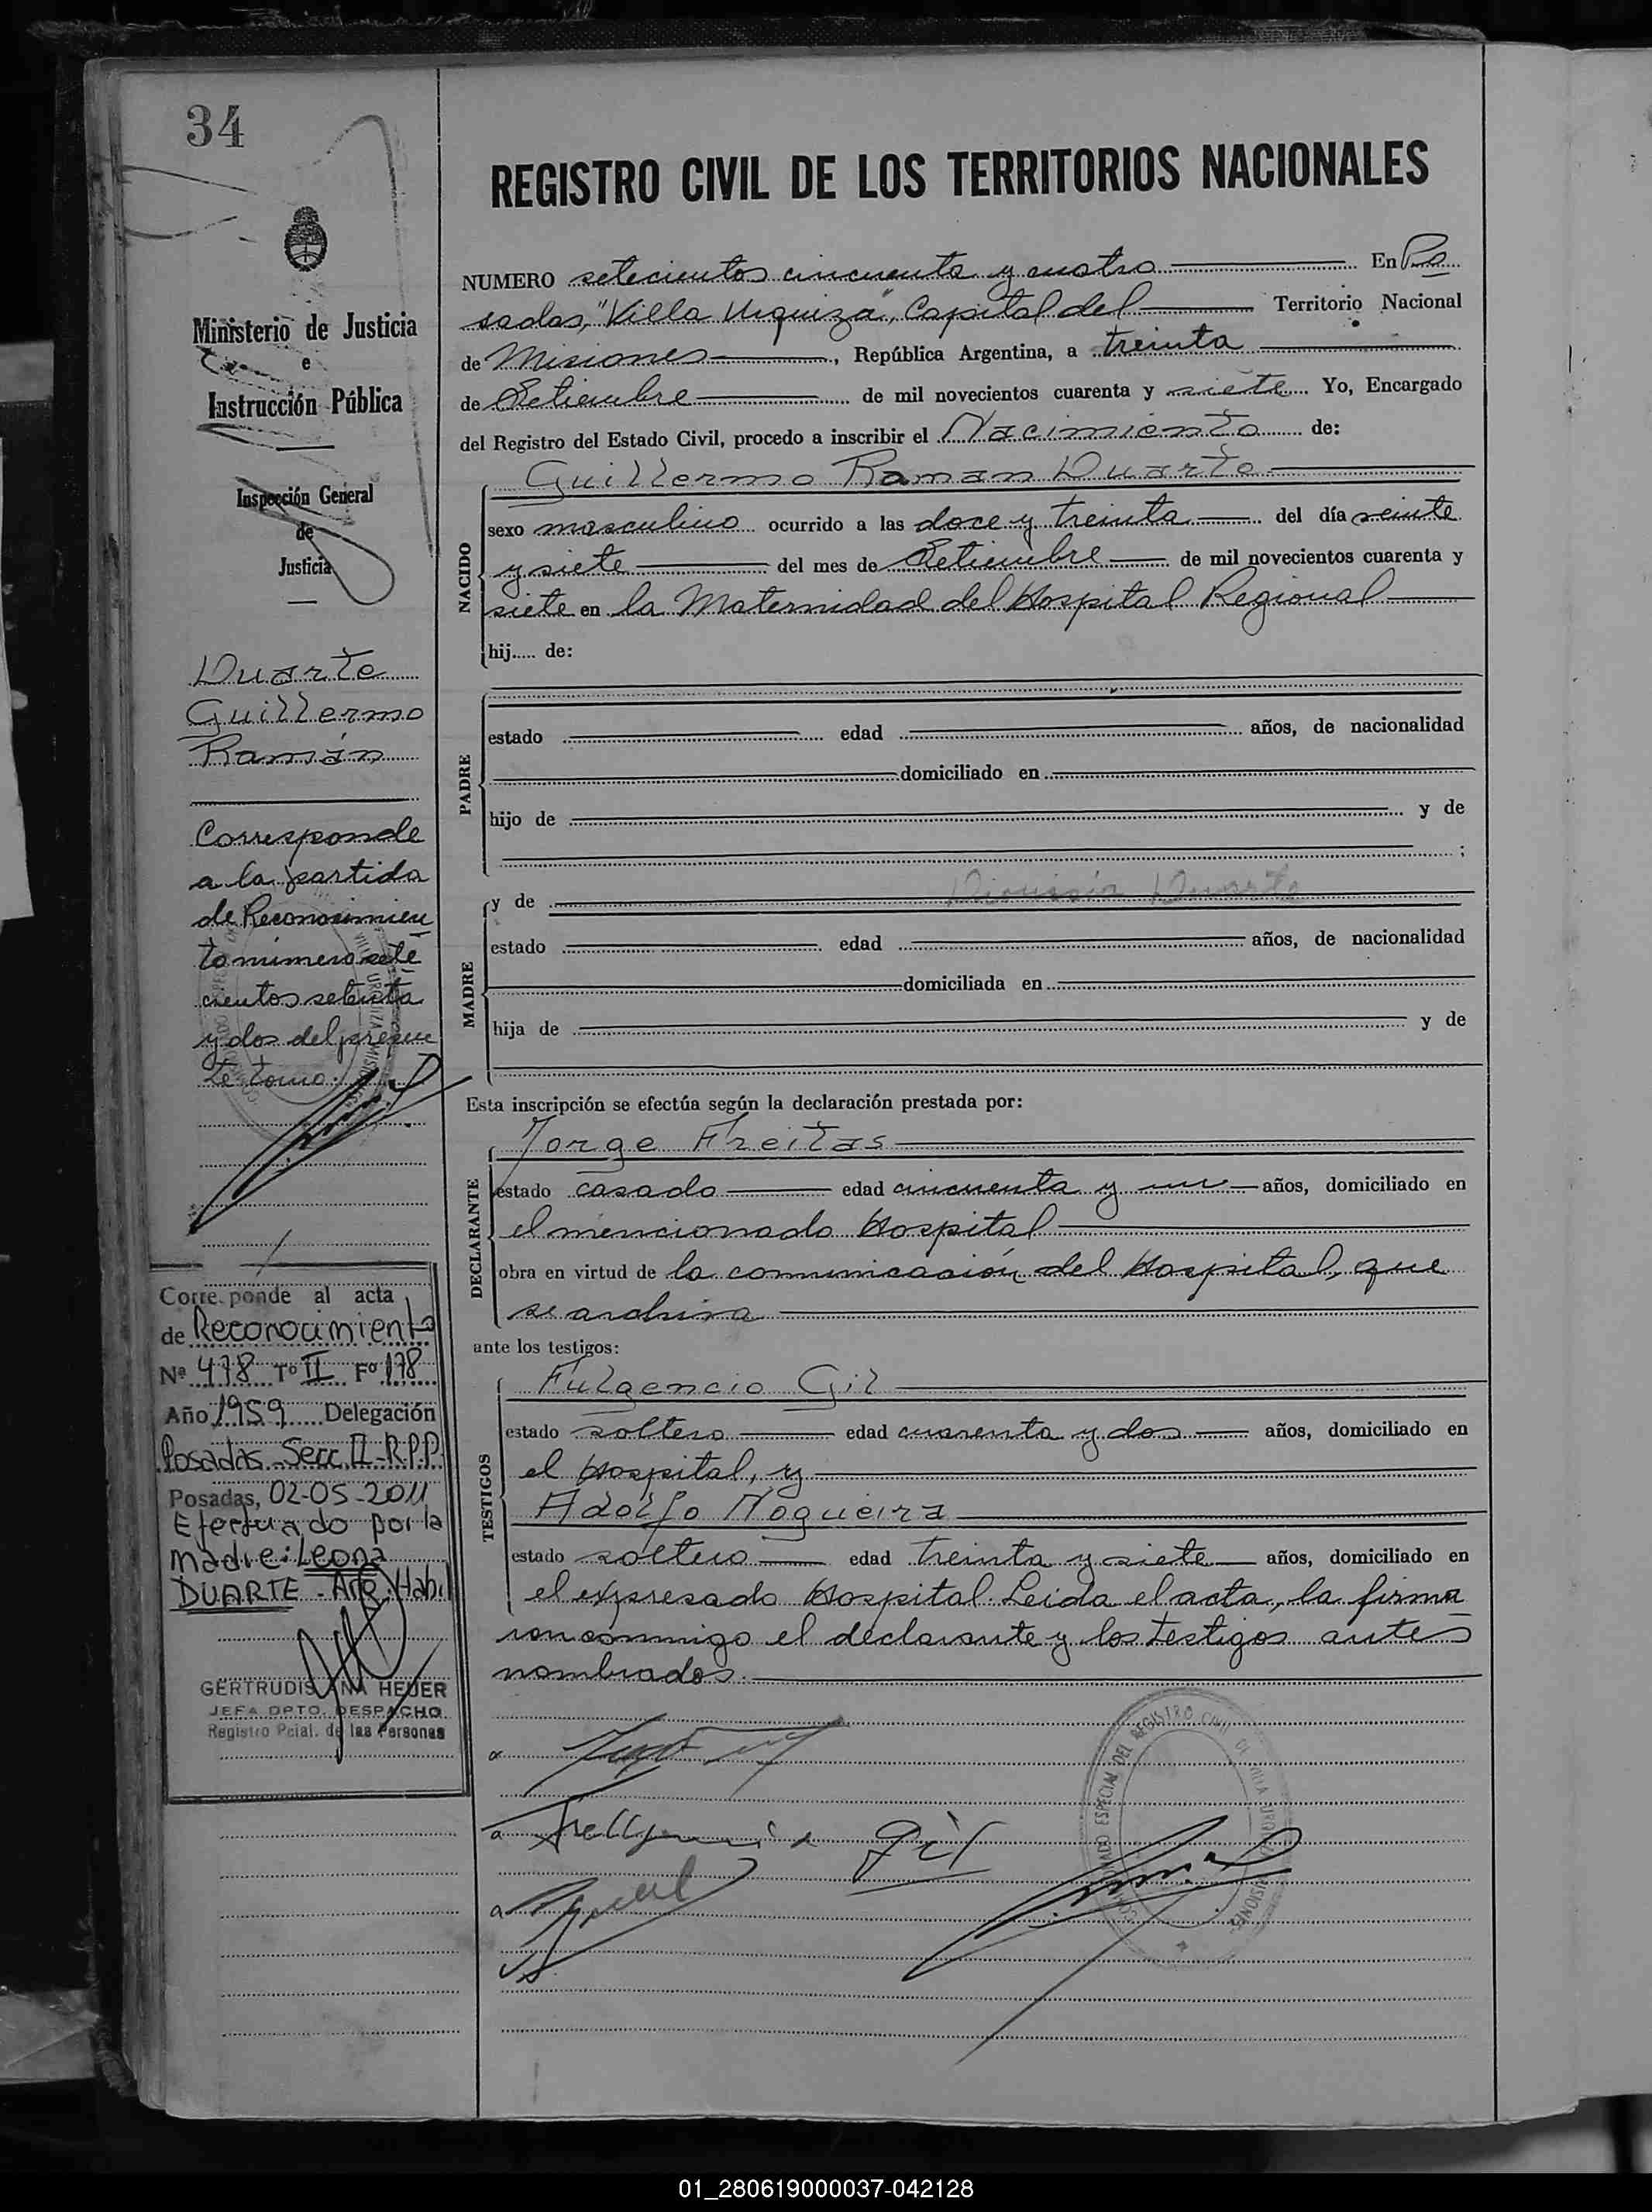 34
Ministerio de Justicia
e
Instrucción Pública
Inspección General
de
Justicia
Duarte
Guillermo
Ramón
Corresponde
a la partida
de Reconocimien
to número sete
cientos setenta
y dos del presen
te tomo.
Corresponde al acta
de Reconocimiento
Nº 478 Tº II Fº 178
Año 1959 Delegación
Posadas Secc. II - R.P.P.
Posadas, 02-05-2011
Efectuado por la
madre: Leona
DUARTE - Arg. Habil
GERTRUDIS ANA HEUER
JEFA DPTO. DESPACHO
Registro Pcial. de las Personas
REGISTRO CIVIL DE LOS TERRITORIOS NACIONALES
NUMERO setecientos cincuenta y cuatro En Po
sadas, "Villa Urquiza", Capital del Territorio Nacional
de Misiones, República Argentina, a treinta
de Setiembre de mil novecientos cuarenta y siete Yo, Encargado
del Registro del Estado Civil, procedo a inscribir el Nacimiento de:
NACIDO
Guillermo Ramon Duarte
sexo masculino ocurrido a las doce y treinta del día veinte
y siete del mes de Setiembre de mil novecientos cuarenta y
siete en la Maternidad del Hospital Regional
hij..... de:
PADRE
estado edad años, de nacionalidad
domiciliado en
hijo de y de
;
MADRE
y de Duarte
estado edad años, de nacionalidad
domiciliada en
hija de y de
Esta inscripción se efectúa según la declaración prestada por:
DECLARANTE
Jorge Freitas
estado casado edad cincuenta y un años, domiciliado en
el mencionado Hospital
obra en virtud de la comunicación del Hospital que
se archiva
ante los testigos:
TESTIGOS
Fulgencio Gil
estado soltero edad cuarenta y dos años, domiciliado en
el Hospital, y
Adolfo Nogueira
estado soltero edad treinta y siete años, domiciliado en
el expresado Hospital. Leida el acta, la firma
ron conmigo el declarante y los testigos antes
nombrados.
Fulgencio Gil
COMISIONADO ESPECIAL DEL REGISTRO CIVIL DE VILLA URQUIZA MISIONES
01_280619000037-042128